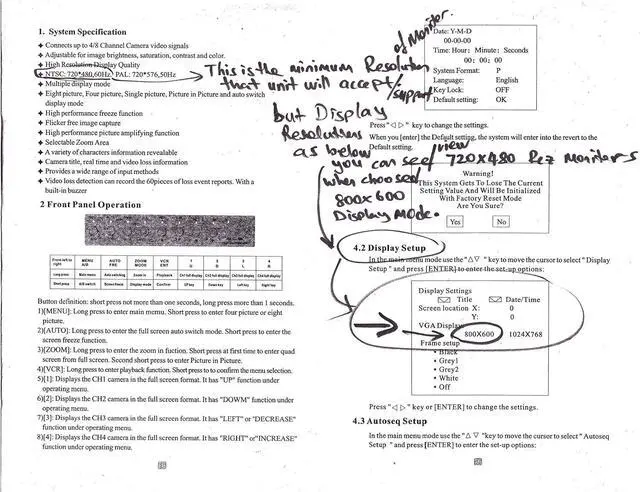 1. System Specification
✦ Connects up to 4/8 Channel Camera video signals
✦ Adjustable for image brightness, saturation, contrast and color.
✦ High Resolution Display Quality
✦ NTSC: 720*480,60Hz PAL: 720*576,50Hz
✦ Multiple display mode
✦ Eight picture, Four picture, Single picture, Picture in Picture and auto switch
display mode
✦ High performance freeze function
✦ Flicker free image capture
✦ High performance picture amplifying function
✦ Selectable Zoom Area
✦ A variety of characters information revealable
✦ Camera title, real time and video loss information
✦ Provides a wide range of input methods
✦ Video loss detection can record the 60pieces of loss event reports. With a
built-in buzzer
2 Front Panel Operation
Front left to right MENU A/D AUTO FRE ZOOM MODE VCR ENT 1 U 2 D 3 L 4 R
Long press Main menu Auto switching Zoom in Playback Ch1 full display Ch2 full display Ch3 full display Ch4 full display
Short press A/D switch Screen freeze Display mode Confirm UP key Down key Left key Right key
Button definition: short press not more than one seconds, long press more than 1 seconds.
1)[MENU]: Long press to enter main menu. Short press to enter four picture or eight
picture.
2)[AUTO]: Long press to enter the full screen auto switch mode. Short press to enter the
screen freeze function.
3)[ZOOM]: Long press to enter the zoom in fuction. Short press at first time to enter quad
screen from full screen. Second short press to enter Picture in Picture.
4)[VCR]: Long press to enter playback function. Short press to confirm the menu selection.
5)[1]: Displays the CH1 camera in the full screen format. It has "UP" function under
operating menu.
6)[2]: Displays the CH2 camera in the full screen format. It has "DOWM" function under
operating menu.
7)[3]: Displays the CH3 camera in the full screen format. It has "LEFT" or "DECREASE"
function under operating menu.
8)[4]: Displays the CH4 camera in the full screen format. It has "RIGHT" or "INCREASE"
function under operating menu.
This is the minimum Resolution of Monitor
that unit will accept/support
but Display
Resolution
as below
you can see/view 720x480 Rez Monitors
when choosed
800x600
Display Mode.
Date: Y-M-D
00-00-00
Time: Hour: Minute: Seconds
00: 00: 00
System Format: P
Language: English
Key Lock: OFF
Default setting: OK
Press "◁ ▷" key to change the settings.
When you [enter] the Default setting, the system will enter into the revert to the
Default setting.
Warning!
This System Gets To Lose The Current
Setting Value And Will Be Initialized
With Factory Reset Mode
Are You Sure?
Yes No
4.2 Display Setup
In the main menu mode use the "△ ▽" key to move the cursor to select "Display
Setup" and press [ENTER] to enter the set-up options:
Display Settings
Title Date/Time
Screen location X: 0
Y: 0
VGA Display 800X600 1024X768
Frame setup
• Black
• Grey1
• Grey2
• White
• Off
Press "◁ ▷" key or [ENTER] to change the settings.
4.3 Autoseq Setup
In the main menu mode use the "△ ▽ "key to move the cursor to select "Autoseq
Setup " and press [ENTER] to enter the set-up options: